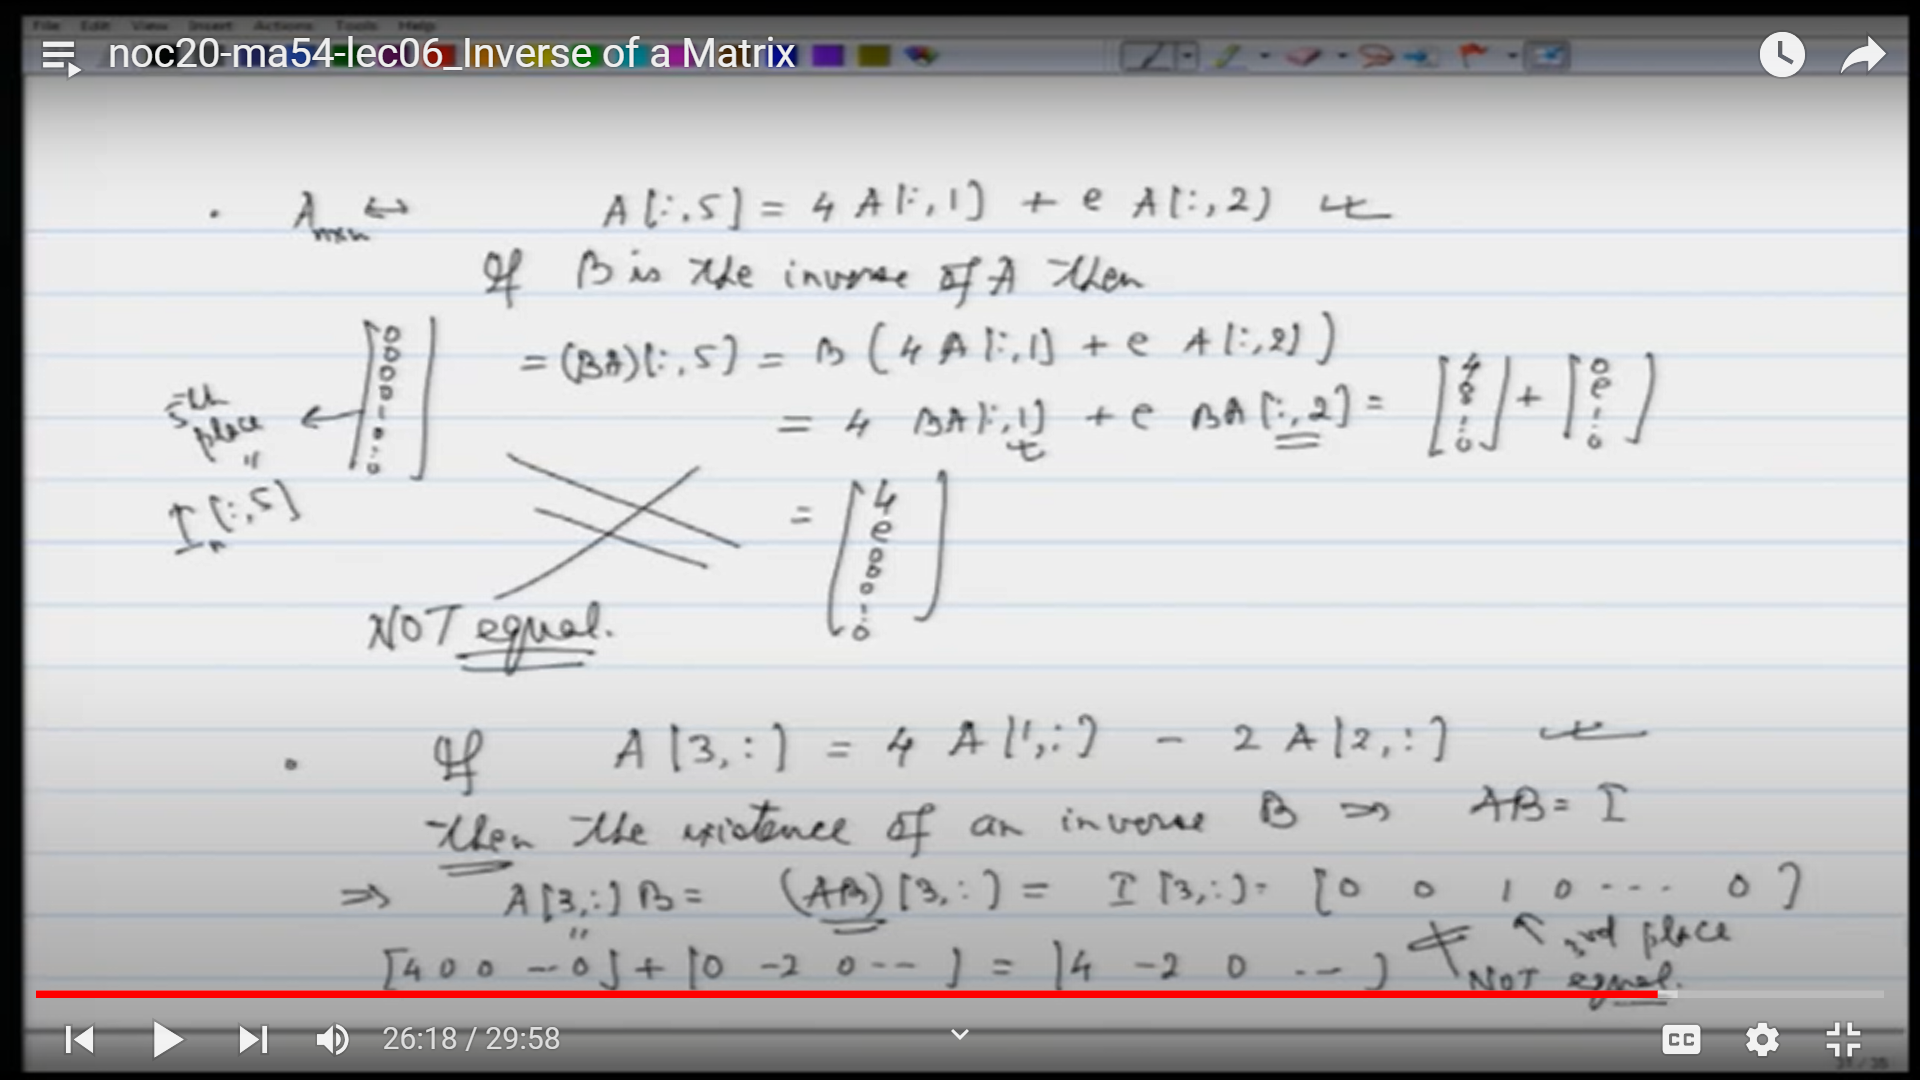 File Edit View Insert Actions Tools Help
noc20-ma54-lec06_Inverse of a Matrix
. A n×n ↔ A[:,5] = 4 A[:,1] + e A[:,2]
If B is the inverse of A then
= (BA)[:,5] = B (4 A[:,1] + e A[:,2])
5th place ← [0 0 0 0 1 0 : 0]
= 4 BA[:,1] + e BA[:,2] = [4 0 : 0] + [0 e : 0]
" In[:,5]
= [4 e 0 0 0 : 0]
NOT equal.
. If A[3,:] = 4 A[1,:] - 2 A[2,:]
then the existence of an inverse B ⇒ AB = I
⇒ A[3,:] B = (AB)[3,:] = I[3,:] = [0 0 1 0 ---- 0]
" ↑ 3rd place
[4 0 0 -- 0] + [0 -2 0 --] = [4 -2 0 --] NOT equal.
26:18 / 29:58
CC